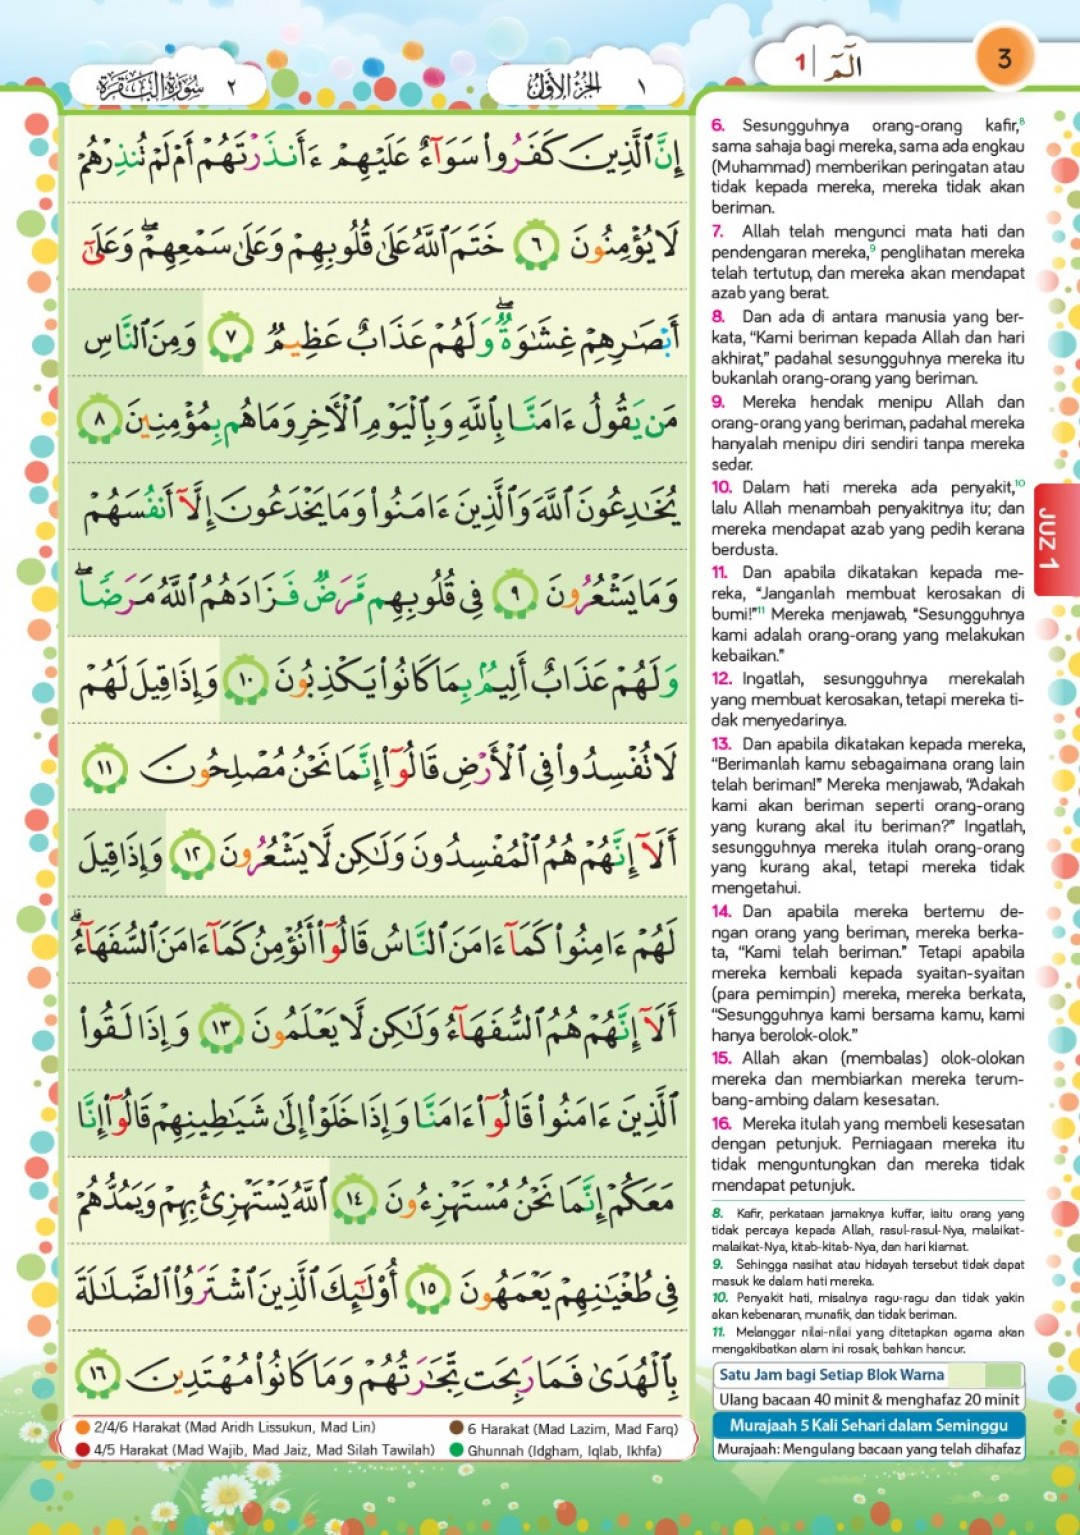 ٢ سُورَةُ البَقَرَة
الجُزْءُ الأوَّل ١
1 | الٓمٓ
3
إِنَّ ٱلَّذِينَ كَفَرُوا۟ سَوَآءٌ عَلَيْهِمْ ءَأَنذَرْتَهُمْ أَمْ لَمْ تُنذِرْهُمْ
لَا يُؤْمِنُونَ ٦ خَتَمَ ٱللَّهُ عَلَىٰ قُلُوبِهِمْ وَعَلَىٰ سَمْعِهِمْ ۖ وَعَلَىٰٓ
أَبْصَٰرِهِمْ غِشَٰوَةٌ ۖ وَلَهُمْ عَذَابٌ عَظِيمٌ ٧ وَمِنَ ٱلنَّاسِ
مَن يَقُولُ ءَامَنَّا بِٱللَّهِ وَبِٱلْيَوْمِ ٱلْأَخِرِ وَمَا هُم بِمُؤْمِنِينَ ٨
يُخَٰدِعُونَ ٱللَّهَ وَٱلَّذِينَ ءَامَنُوا۟ وَمَا يَخْدَعُونَ إِلَّآ أَنفُسَهُمْ
وَمَا يَشْعُرُونَ ٩ فِى قُلُوبِهِم مَّرَضٌ فَزَادَهُمُ ٱللَّهُ مَرَضًا ۖ
وَلَهُمْ عَذَابٌ أَلِيمٌۢ بِمَا كَانُوا۟ يَكْذِبُونَ ١٠ وَإِذَا قِيلَ لَهُمْ
لَا تُفْسِدُوا۟ فِى ٱلْأَرْضِ قَالُوٓا۟ إِنَّمَا نَحْنُ مُصْلِحُونَ ١١
أَلَآ إِنَّهُمْ هُمُ ٱلْمُفْسِدُونَ وَلَٰكِن لَّا يَشْعُرُونَ ١٢ وَإِذَا قِيلَ
لَهُمْ ءَامِنُوا۟ كَمَآ ءَامَنَ ٱلنَّاسُ قَالُوٓا۟ أَنُؤْمِنُ كَمَآ ءَامَنَ ٱلسُّفَهَآءُ ۗ
أَلَآ إِنَّهُمْ هُمُ ٱلسُّفَهَآءُ وَلَٰكِن لَّا يَعْلَمُونَ ١٣ وَإِذَا لَقُوا۟
ٱلَّذِينَ ءَامَنُوا۟ قَالُوٓا۟ ءَامَنَّا وَإِذَا خَلَوْا۟ إِلَىٰ شَيَٰطِينِهِمْ قَالُوٓا۟ إِنَّا
مَعَكُمْ إِنَّمَا نَحْنُ مُسْتَهْزِءُونَ ١٤ ٱللَّهُ يَسْتَهْزِئُ بِهِمْ وَيَمُدُّهُمْ
فِى طُغْيَٰنِهِمْ يَعْمَهُونَ ١٥ أُو۟لَٰٓئِكَ ٱلَّذِينَ ٱشْتَرَوُا۟ ٱلضَّلَٰلَةَ
بِٱلْهُدَىٰ فَمَا رَبِحَت تِّجَٰرَتُهُمْ وَمَا كَانُوا۟ مُهْتَدِينَ ١٦
2/4/6 Harakat (Mad Aridh Lissukun, Mad Lin)
6 Harakat (Mad Lazim, Mad Farq)
4/5 Harakat (Mad Wajib, Mad Jaiz, Mad Silah Tawilah)
Ghunnah (Idgham, Iqlab, Ikhfa)
6. Sesungguhnya orang-orang kafir,⁸
sama sahaja bagi mereka, sama ada engkau
(Muhammad) memberikan peringatan atau
tidak kepada mereka, mereka tidak akan
beriman.
7. Allah telah mengunci mata hati dan
pendengaran mereka,⁹ penglihatan mereka
telah tertutup, dan mereka akan mendapat
azab yang berat.
8. Dan ada di antara manusia yang ber-
kata, “Kami beriman kepada Allah dan hari
akhirat,” padahal sesungguhnya mereka itu
bukanlah orang-orang yang beriman.
9. Mereka hendak menipu Allah dan
orang-orang yang beriman, padahal mereka
hanyalah menipu diri sendiri tanpa mereka
sedar.
10. Dalam hati mereka ada penyakit,¹⁰
lalu Allah menambah penyakitnya itu; dan
mereka mendapat azab yang pedih kerana
berdusta.
11. Dan apabila dikatakan kepada me-
reka, “Janganlah membuat kerosakan di
bumi!”¹¹ Mereka menjawab, “Sesungguhnya
kami adalah orang-orang yang melakukan
kebaikan.”
12. Ingatlah, sesungguhnya merekalah
yang membuat kerosakan, tetapi mereka ti-
dak menyedarinya.
13. Dan apabila dikatakan kepada mereka,
“Berimanlah kamu sebagaimana orang lain
telah beriman!” Mereka menjawab, “Adakah
kami akan beriman seperti orang-orang
yang kurang akal itu beriman?” Ingatlah,
sesungguhnya mereka itulah orang-orang
yang kurang akal, tetapi mereka tidak
mengetahui.
14. Dan apabila mereka bertemu de-
ngan orang yang beriman, mereka berka-
ta, “Kami telah beriman.” Tetapi apabila
mereka kembali kepada syaitan-syaitan
(para pemimpin) mereka, mereka berkata,
“Sesungguhnya kami bersama kamu, kami
hanya berolok-olok.”
15. Allah akan (membalas) olok-olokan
mereka dan membiarkan mereka terum-
bang-ambing dalam kesesatan.
16. Mereka itulah yang membeli kesesatan
dengan petunjuk. Perniagaan mereka itu
tidak menguntungkan dan mereka tidak
mendapat petunjuk.
8. Kafir, perkataan jamaknya kuffar, iaitu orang yang
tidak percaya kepada Allah, rasul-rasul-Nya, malaikat-
malaikat-Nya, kitab-kitab-Nya, dan hari kiamat.
9. Sehingga nasihat atau hidayah tersebut tidak dapat
masuk ke dalam hati mereka.
10. Penyakit hati, misalnya ragu-ragu dan tidak yakin
akan kebenaran, munafik, dan tidak beriman.
11. Melanggar nilai-nilai yang ditetapkan agama akan
mengakibatkan alam ini rosak, bahkan hancur.
Satu Jam bagi Setiap Blok Warna
Ulang bacaan 40 minit & menghafaz 20 minit
Murajaah 5 Kali Sehari dalam Seminggu
Murajaah: Mengulang bacaan yang telah dihafaz
JUZ 1